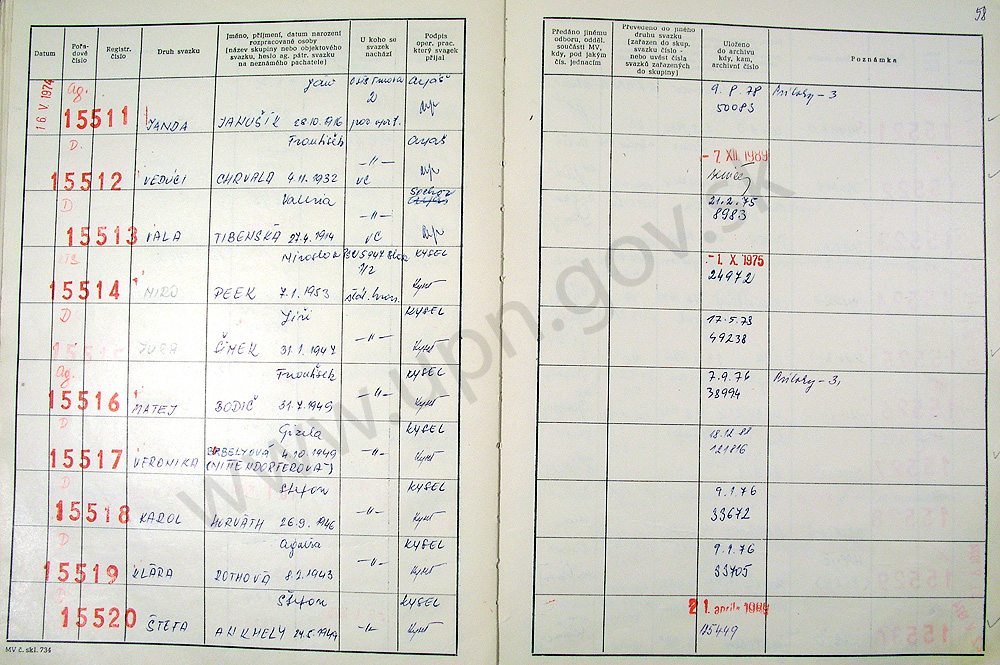 58
Datum
Pořadové číslo
Registr. číslo
Druh svazku
Jméno, příjmení, datum narození rozpracované osoby (název skupiny nebo objektového svazku, heslo ag. pátr. svazku na neznámého pachatele)
U koho se svazek nachází
Podpis oper. prac. který svazek přijal
Předáno jinému odboru, odděl. součásti MV, kdy, pod jakým čís. jednacím
Převedeno do jiného druhu svazku (zařazen do skup. svazku číslo - nebo uvést čísla svazků zařazených do skupiny)
Uloženo do archivu kdy, kam, archivní číslo
Poznámka
16 V 1974
Ag.
15511 JANDA JANUŠÍK 28.10.1916
9. 8. 78 Prílohy - 3
50083
D. František
15512 VEDÚCI CHRVALA 4.11.1932 -"- VC
- 7. XII. 1989
D Valéria
15513 VALA TIBENSKÁ 27.4.1914 -"- VC
21.2.75
8983
Miroslav KYSEL
15514 MIRO PEEK 7.1.1953
- 1. X. 1975
24972
D Jiří KYSEL
JURA ŠIMEK 31.1.1947 -"-
17.5.78
49238
Ag. František KYSEL
15516 MATEJ BODIČ 31.7.1949 -"-
7.9.76 Prílohy - 3,
38994
D Gizela KYSEL
15517 VERONIKA 4.10.1949 -"-
(MITTENDORFEROVÁ)
18.12.81
121816
D Štefan KYSEL
15518 KAROL HORVÁTH 26.9.1946 -"-
9.1.76
33672
D KYSEL
15519 KLÁRA ROTHOVÁ 8.2.1943 -"-
9.1.76
33705
D Štefan KYSEL
15520 ŠTEFA ANKHELY -"-
21. apríla 1989
115449
MV č. skl. 734
www.upn.gov.sk